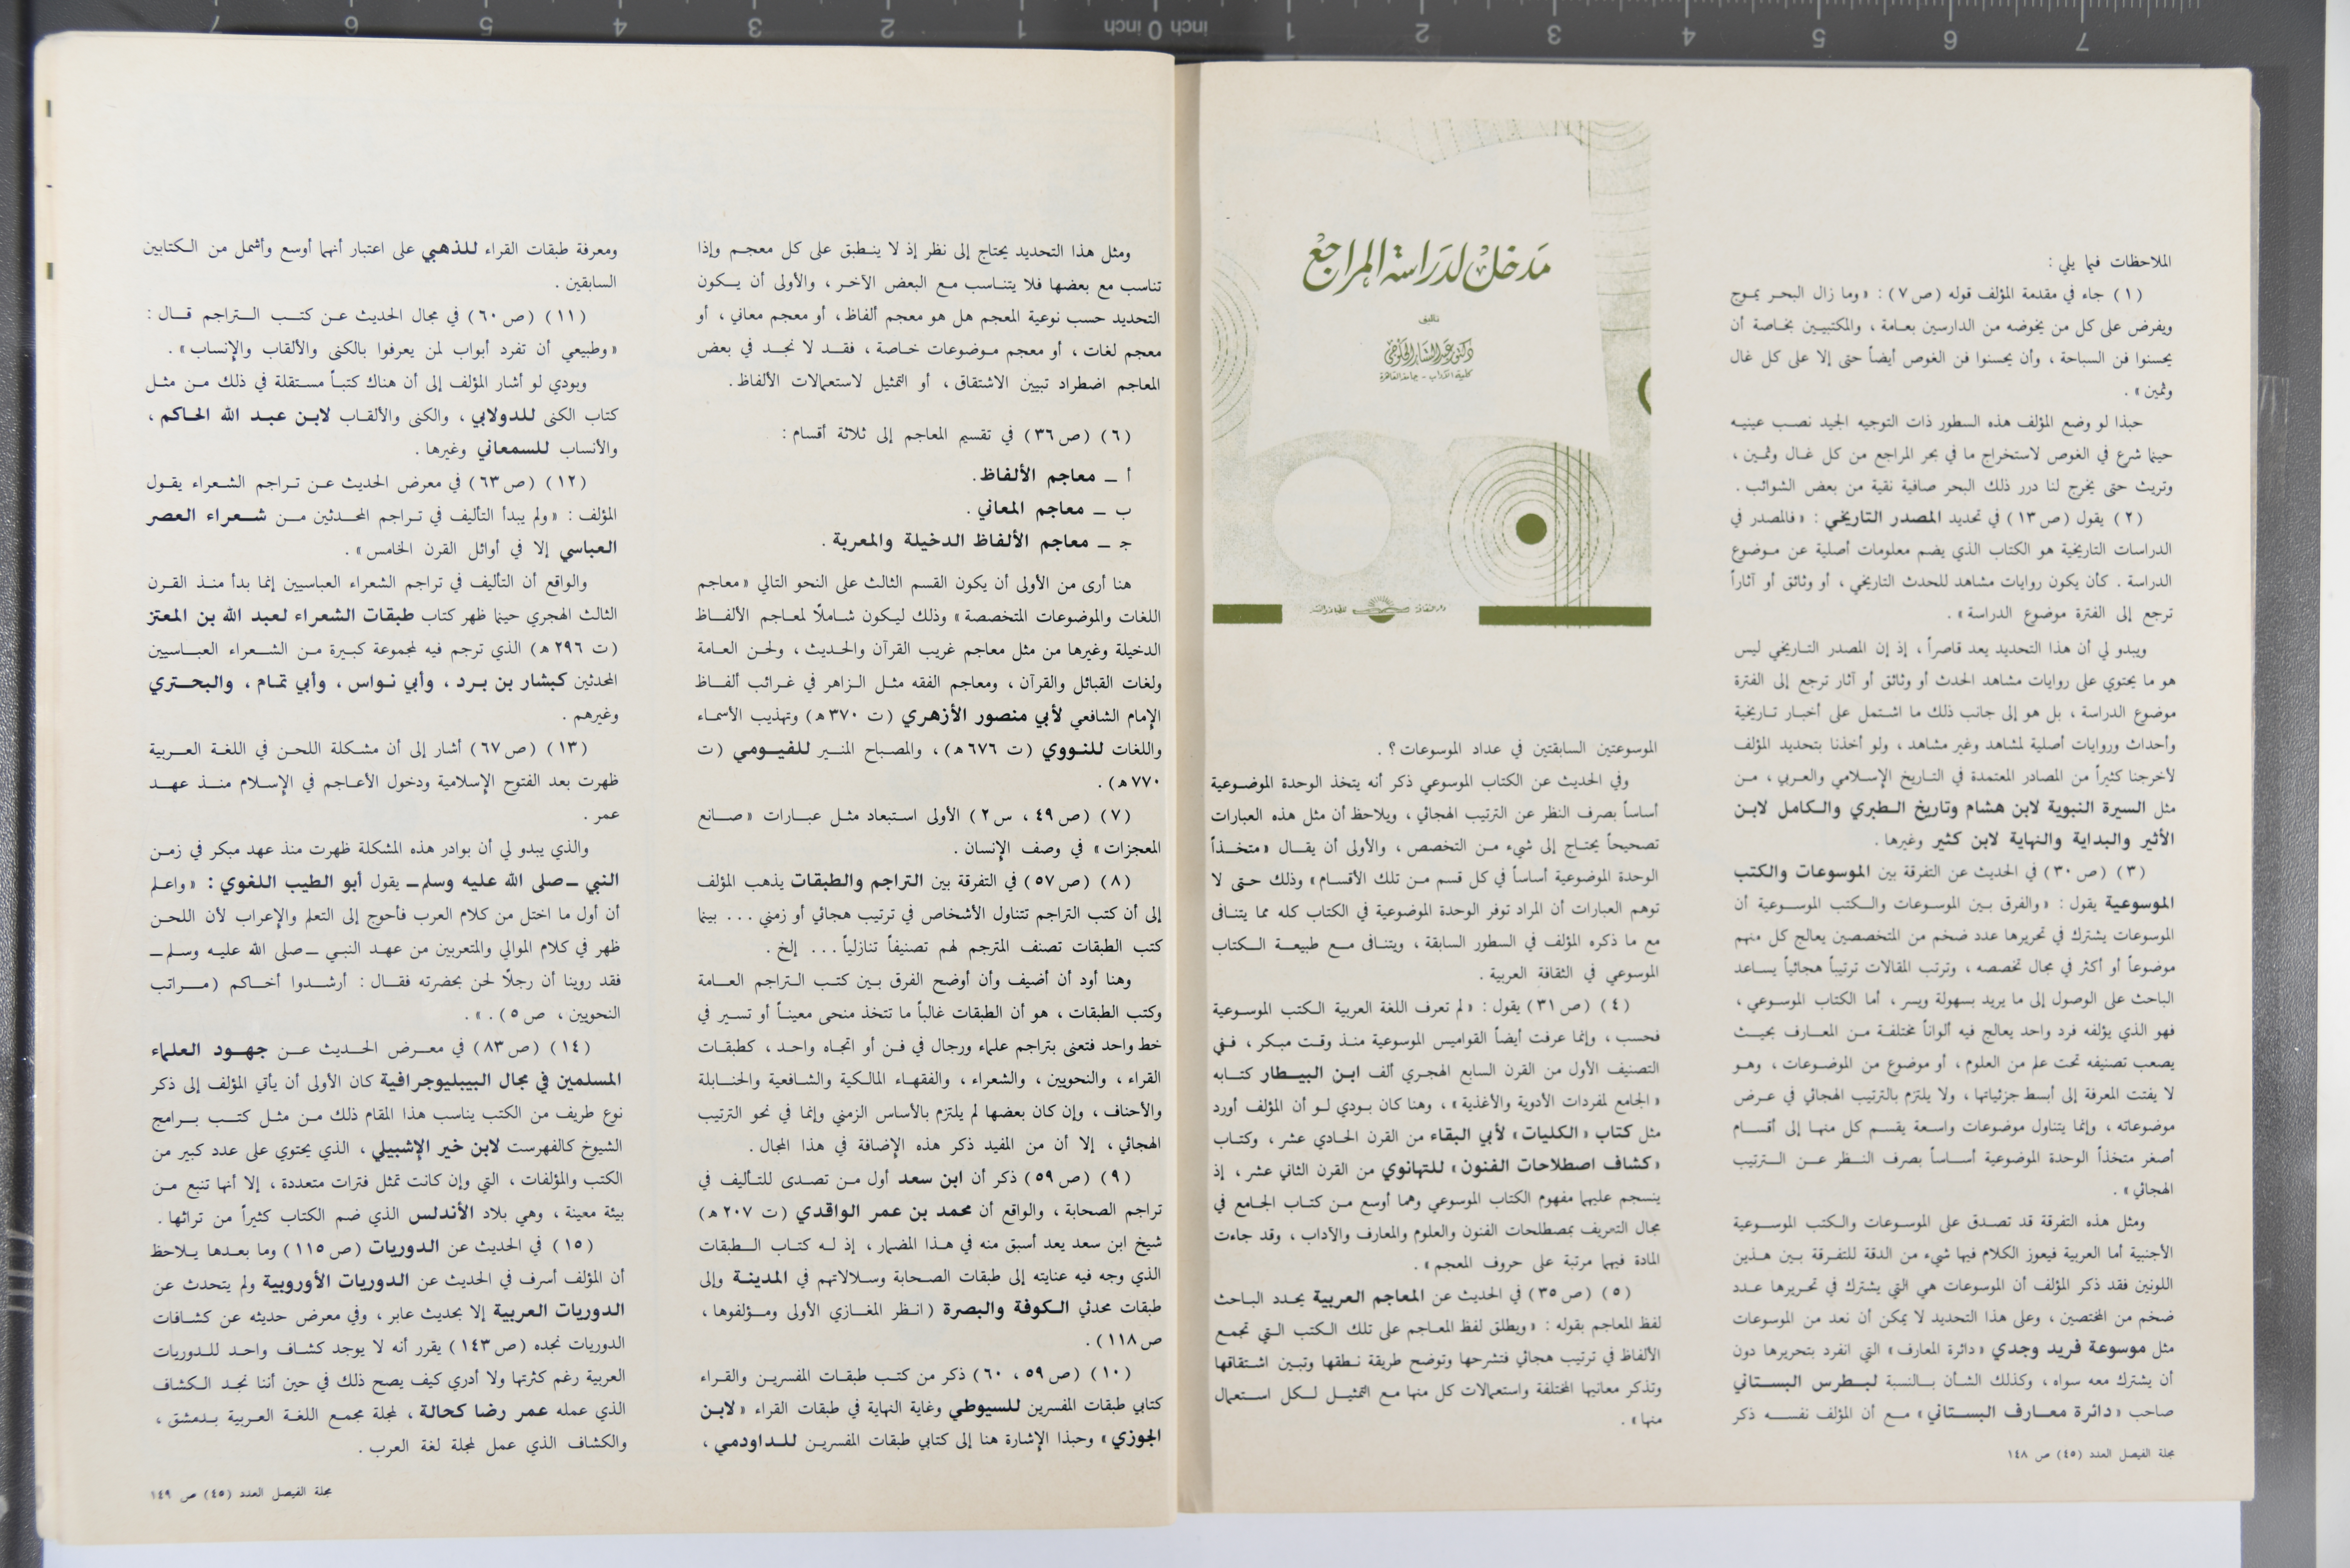 الملاحظات فيما يلي :
(١) جاء في مقدمة المؤلف قوله (ص ٧) : «وما زال البحر يموج
ويفرض على كل من يخوضه من الدارسين بعامة ، والمكتبيين بخاصة أن
يحسنوا فن السباحة ، وأن يحسنوا فن الغوص أيضاً حتى إلا على كل غال
وثمين» .
حبذا لو وضع المؤلف هذه السطور ذات التوجيه الجيد نصب عينيه
حينما شرع في الغوص لاستخراج ما في بحر المراجع من كل غال وثمين ،
وتريث حتى يخرج لنا درر ذلك البحر صافية نقية من بعض الشوائب .
(٢) يقول (ص ١٣) في تحديد المصدر التاريخي : «فالمصدر في
الدراسات التاريخية هو الكتاب الذي يضم معلومات أصلية عن موضوع
الدراسة . كأن يكون روايات مشاهد للحدث التاريخي ، أو وثائق أو آثاراً
ترجع إلى الفترة موضوع الدراسة» .
ويبدو لي أن هذا التحديد يعد قاصراً ، إذ إن المصدر التاريخي ليس
هو ما يحتوي على روايات مشاهد الحدث أو وثائق أو آثار ترجع إلى الفترة
موضوع الدراسة ، بل هو إلى جانب ذلك ما اشتمل على أخبار تاريخية
وأحداث وروايات أصلية لمشاهد وغير مشاهد ، ولو أخذنا بتحديد المؤلف
لأخرجنا كثيراً من المصادر المعتمدة في التاريخ الإسلامي والعربي ، من
مثل السيرة النبوية لابن هشام وتاريخ الطبري والكامل لابن
الأثير والبداية والنهاية لابن كثير وغيرها .
(٣) (ص ٣٠) في الحديث عن التفرقة بين الموسوعات والكتب
الموسوعية يقول : «والفرق بين الموسوعات والكتب الموسوعية أن
الموسوعات يشترك في تحريرها عدد ضخم من المتخصصين يعالج كل منهم
موضوعاً أو أكثر في مجال تخصصه ، وترتب المقالات ترتيباً هجائياً يساعد
الباحث على الوصول إلى ما يريد بسهولة ويسر ، أما الكتاب الموسوعي ،
فهو الذي يؤلفه فرد واحد يعالج فيه ألواناً مختلفة من المعارف بحيث
يصعب تصنيفه تحت علم من العلوم ، أو موضوع من الموضوعات ، وهو
لا يفتت المعرفة إلى أبسط جزئياتها ، ولا يلتزم بالترتيب الهجائي في عرض
موضوعاته ، وإنما يتناول موضوعات واسعة يقسم كل منها إلى أقسام
أصغر متخذاً الوحدة الموضوعية أساساً بصرف النظر عن الترتيب
الهجائي» .
ومثل هذه التفرقة قد تصدق على الموسوعات والكتب الموسوعية
الأجنبية أما العربية فيعوز الكلام فيها شيء من الدقة للتفرقة بين هذين
اللونين فقد ذكر المؤلف أن الموسوعات هي التي يشترك في تحريرها عدد
ضخم من المختصين ، وعلى هذا التحديد لا يمكن أن نعد من الموسوعات
مثل موسوعة فريد وجدي «دائرة المعارف» التي انفرد بتحريرها دون
أن يشترك معه سواه ، وكذلك الشأن بالنسبة لبطرس البستاني
صاحب «دائرة معارف البستاني» مع أن المؤلف نفسه ذكر
مجلة الفيصل العدد (٤٥) ص ١٤٨
مدخل لدراسة المراجع
تأليف
دكتور عبد الستار الحلوجي
كلية الآداب - جامعة القاهرة
الموسوعتين السابقتين في عداد الموسوعات ؟ .
وفي الحديث عن الكتاب الموسوعي ذكر أنه يتخذ الوحدة الموضوعية
أساساً بصرف النظر عن الترتيب الهجائي ، ويلاحظ أن مثل هذه العبارات
تصحيحاً يحتاج إلى شيء من التخصص ، والأولى أن يقال «متخذاً
الوحدة الموضوعية أساساً في كل قسم من تلك الأقسام» وذلك حتى لا
توهم العبارات أن المراد توفر الوحدة الموضوعية في الكتاب كله مما يتنافى
مع ما ذكره المؤلف في السطور السابقة ، ويتنافى مع طبيعة الكتاب
الموسوعي في الثقافة العربية .
(٤) (ص ٣١) يقول : «لم تعرف اللغة العربية الكتب الموسوعية
فحسب ، وإنما عرفت أيضاً القواميس الموسوعية منذ وقت مبكر ، ففي
التصنيف الأول من القرن السابع الهجري ألف ابن البيطار كتابه
«الجامع لمفردات الأدوية والأغذية» ، وهنا كان بودي لو أن المؤلف أورد
مثل كتاب «الكليات» لأبي البقاء من القرن الحادي عشر ، وكتاب
«كشاف اصطلاحات الفنون» للتهانوي من القرن الثاني عشر ، إذ
ينسجم عليهما مفهوم الكتاب الموسوعي وهما أوسع من كتاب الجامع في
مجال التعريف بمصطلحات الفنون والعلوم والمعارف والآداب ، وقد جاءت
المادة فيهما مرتبة على حروف المعجم» .
(٥) (ص ٣٥) في الحديث عن المعاجم العربية يحدد الباحث
لفظ المعاجم بقوله : «ويطلق لفظ المعاجم على تلك الكتب التي تجمع
الألفاظ في ترتيب هجائي فتشرحها وتوضح طريقة نطقها وتبين اشتقاقها
وتذكر معانيها المختلفة واستعمالات كل منها مع التمثيل لكل استعمال
منها» .
ومثل هذا التحديد يحتاج إلى نظر إذ لا ينطبق على كل معجم وإذا
تناسب مع بعضها فلا يتناسب مع البعض الآخر ، والأولى أن يكون
التحديد حسب نوعية المعجم هل هو معجم ألفاظ ، أو معجم معاني ، أو
معجم لغات ، أو معجم موضوعات خاصة ، فقد لا نجد في بعض
المعاجم اضطراد تبيين الاشتقاق ، أو التمثيل لاستعمالات الألفاظ .
(٦) (ص ٣٦) في تقسيم المعاجم إلى ثلاثة أقسام :
أ ــ معاجم الألفاظ .
ب ــ معاجم المعاني .
جـ ــ معاجم الألفاظ الدخيلة والمعربة .
هنا أرى من الأولى أن يكون القسم الثالث على النحو التالي «معاجم
اللغات والموضوعات المتخصصة» وذلك ليكون شاملاً لمعاجم الألفاظ
الدخيلة وغيرها من مثل معاجم غريب القرآن والحديث ، ولحن العامة
ولغات القبائل والقرآن ، ومعاجم الفقه مثل الزاهر في غرائب ألفاظ
الإمام الشافعي لأبي منصور الأزهري (ت ٣٧٠ هـ) وتهذيب الأسماء
واللغات للنووي (ت ٦٧٦ هـ) ، والمصباح المنير للفيومي (ت
٧٧٠ هـ) .
(٧) (ص ٤٩ ، س ٢) الأولى استبعاد مثل عبارات «صانع
المعجزات» في وصف الإنسان .
(٨) (ص ٥٧) في التفرقة بين التراجم والطبقات يذهب المؤلف
إلى أن كتب التراجم تتناول الأشخاص في ترتيب هجائي أو زمني ... بينما
كتب الطبقات تصنف المترجم لهم تصنيفاً تنازلياً ... إلخ .
وهنا أود أن أضيف وأن أوضح الفرق بين كتب التراجم العامة
وكتب الطبقات ، هو أن الطبقات غالباً ما تتخذ منحى معيناً أو تسير في
خط واحد فتعنى بتراجم علماء ورجال في فن أو اتجاه واحد ، كطبقات
القراء ، والنحويين ، والشعراء ، والفقهاء المالكية والشافعية والحنابلة
والأحناف ، وإن كان بعضها لم يلتزم بالأساس الزمني وإنما في نحو الترتيب
الهجائي ، إلا أن من المفيد ذكر هذه الإضافة في هذا المجال .
(٩) (ص ٥٩) ذكر أن ابن سعد أول من تصدى للتأليف في
تراجم الصحابة ، والواقع أن محمد بن عمر الواقدي (ت ٢٠٧ هـ)
شيخ ابن سعد يعد أسبق منه في هذا المضمار ، إذ له كتاب الطبقات
الذي وجه فيه عنايته إلى طبقات الصحابة وسلالاتهم في المدينة وإلى
طبقات محدثي الكوفة والبصرة (انظر المغازي الأولى ومؤلفوها ،
ص ١١٨) .
(١٠) (ص ٥٩ ، ٦٠) ذكر من كتب طبقات المفسرين والقراء
كتابي طبقات المفسرين للسيوطي وغاية النهاية في طبقات القراء «لابن
الجوزي» وحبذا الإشارة هنا إلى كتابي طبقات المفسرين للداودمي ،
ومعرفة طبقات القراء للذهبي على اعتبار أنهما أوسع وأشمل من الكتابين
السابقين .
(١١) (ص ٦٠) في مجال الحديث عن كتب التراجم قال :
«وطبيعي أن تفرد أبواب لمن يعرفوا بالكنى والألقاب والإنساب» .
وبودي لو أشار المؤلف إلى أن هناك كتباً مستقلة في ذلك من مثل
كتاب الكنى للدولابي ، والكنى والألقاب لابن عبد الله الحاكم ،
والأنساب للسمعاني وغيرها .
(١٢) (ص ٦٣) في معرض الحديث عن تراجم الشعراء يقول
المؤلف : «ولم يبدأ التأليف في تراجم المحدثين من شعراء العصر
العباسي إلا في أوائل القرن الخامس» .
والواقع أن التأليف في تراجم الشعراء العباسيين إنما بدأ منذ القرن
الثالث الهجري حينما ظهر كتاب طبقات الشعراء لعبد الله بن المعتز
(ت ٢٩٦ هـ) الذي ترجم فيه لمجموعة كبيرة من الشعراء العباسيين
المحدثين كبشار بن برد ، وأبي نواس ، وأبي تمام ، والبحتري
وغيرهم .
(١٣) (ص ٦٧) أشار إلى أن مشكلة اللحن في اللغة العربية
ظهرت بعد الفتوح الإسلامية ودخول الأعاجم في الإسلام منذ عهد
عمر .
والذي يبدو لي أن بوادر هذه المشكلة ظهرت منذ عهد مبكر في زمن
النبي ــ صلى الله عليه وسلم ــ يقول أبو الطيب اللغوي : «واعلم
أن أول ما اختل من كلام العرب فأحوج إلى التعلم والإعراب لأن اللحن
ظهر في كلام الموالي والمتعربين من عهد النبي ــ صلى الله عليه وسلم ــ
فقد روينا أن رجلاً لحن بحضرته فقال : أرشدوا أخاكم (مراتب
النحويين ، ص ٥) . » .
(١٤) (ص ٨٣) في معرض الحديث عن جهود العلماء
المسلمين في مجال الببليوجرافية كان الأولى أن يأتي المؤلف إلى ذكر
نوع طريف من الكتب يناسب هذا المقام ذلك من مثل كتب برامج
الشيوخ كالفهرست لابن خير الإشبيلي ، الذي يحتوي على عدد كبير من
الكتب والمؤلفات ، التي وإن كانت تمثل فترات متعددة ، إلا أنها تنبع من
بيئة معينة ، وهي بلاد الأندلس الذي ضم الكتاب كثيراً من تراثها .
(١٥) في الحديث عن الدوريات (ص ١١٥) وما بعدها يلاحظ
أن المؤلف أسرف في الحديث عن الدوريات الأوروبية ولم يتحدث عن
الدوريات العربية إلا بحديث عابر ، وفي معرض حديثه عن كشافات
الدوريات نجده (ص ١٤٣) يقرر أنه لا يوجد كشاف واحد للدوريات
العربية رغم كثرتها ولا أدري كيف يصح ذلك في حين أننا نجد الكشاف
الذي عمله عمر رضا كحالة ، لمجلة مجمع اللغة العربية بدمشق ،
والكشاف الذي عمل لمجلة لغة العرب .
مجلة الفيصل العدد (٤٥) ص ١٤٩
7 6 5 4 3 2 1 inch 0 inch 1 2 3 4 5 6 7